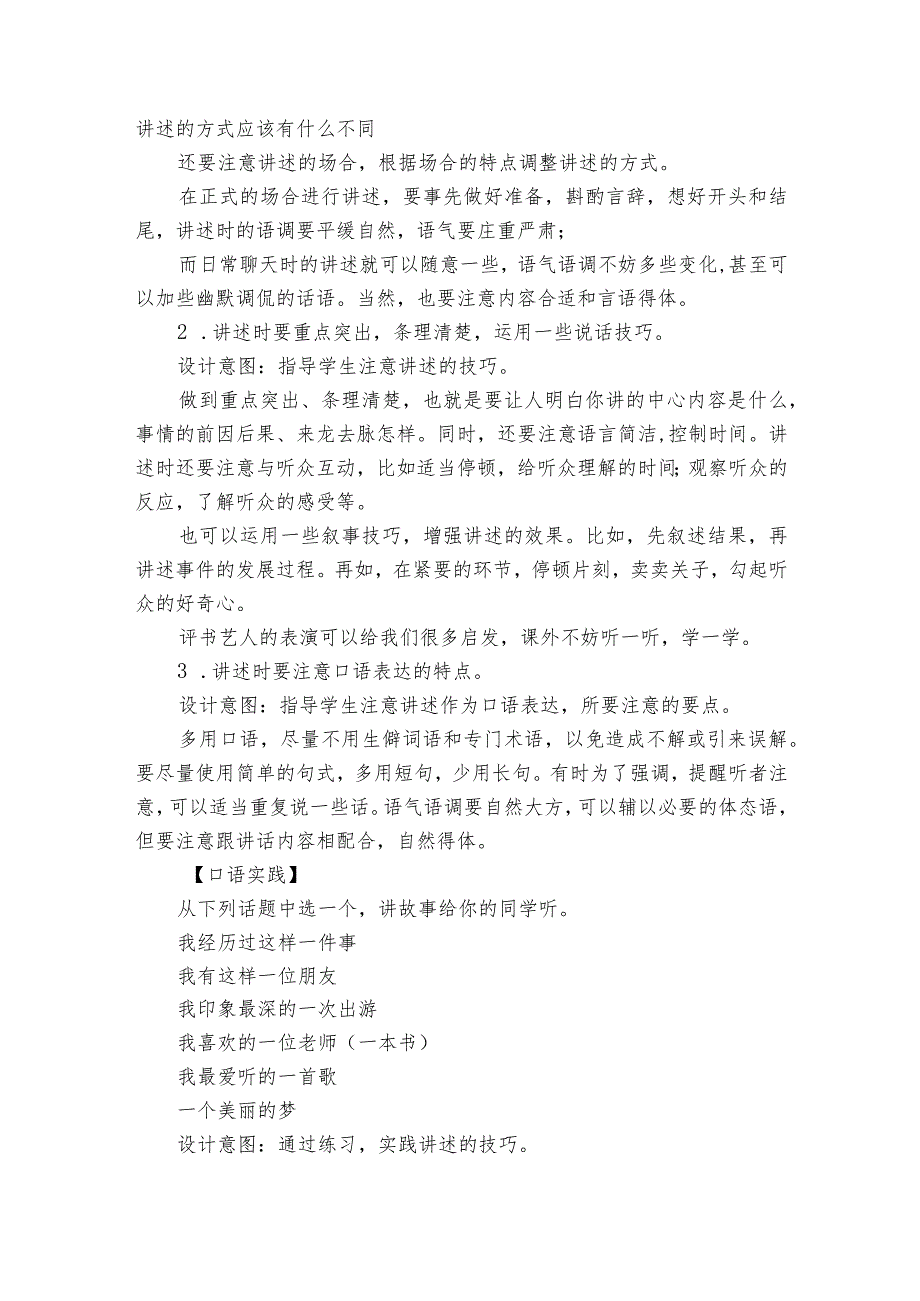 讲述的方式应该有什么不同
还要注意讲述的场合，根据场合的特点调整讲述的方式。
在正式的场合进行讲述，要事先做好准备，斟酌言辞，想好开头和结
尾，讲述时的语调要平缓自然，语气要庄重严肃；
而日常聊天时的讲述就可以随意一些，语气语调不妨多些变化,甚至可
以加些幽默调侃的话语。当然，也要注意内容合适和言语得体。
2 .讲述时要重点突出，条理清楚，运用一些说话技巧。
设计意图：指导学生注意讲述的技巧。
做到重点突出、条理清楚，也就是要让人明白你讲的中心内容是什么，
事情的前因后果、来龙去脉怎样。同时，还要注意语言简洁,控制时间。讲
述时还要注意与听众互动，比如适当停顿，给听众理解的时间；观察听众的
反应，了解听众的感受等。
也可以运用一些叙事技巧，增强讲述的效果。比如，先叙述结果，再
讲述事件的发展过程。再如，在紧要的环节，停顿片刻，卖卖关子，勾起听
众的好奇心。
评书艺人的表演可以给我们很多启发，课外不妨听一听，学一学。
3 .讲述时要注意口语表达的特点。
设计意图：指导学生注意讲述作为口语表达，所要注意的要点。
多用口语，尽量不用生僻词语和专门术语，以免造成不解或引来误解。
要尽量使用简单的句式，多用短句，少用长句。有时为了强调，提醒听者注
意，可以适当重复说一些话。语气语调要自然大方，可以辅以必要的体态语，
但要注意跟讲话内容相配合，自然得体。
【口语实践】
从下列话题中选一个，讲故事给你的同学听。
我经历过这样一件事
我有这样一位朋友
我印象最深的一次出游
我喜欢的一位老师（一本书）
我最爱听的一首歌
一个美丽的梦
设计意图：通过练习，实践讲述的技巧。